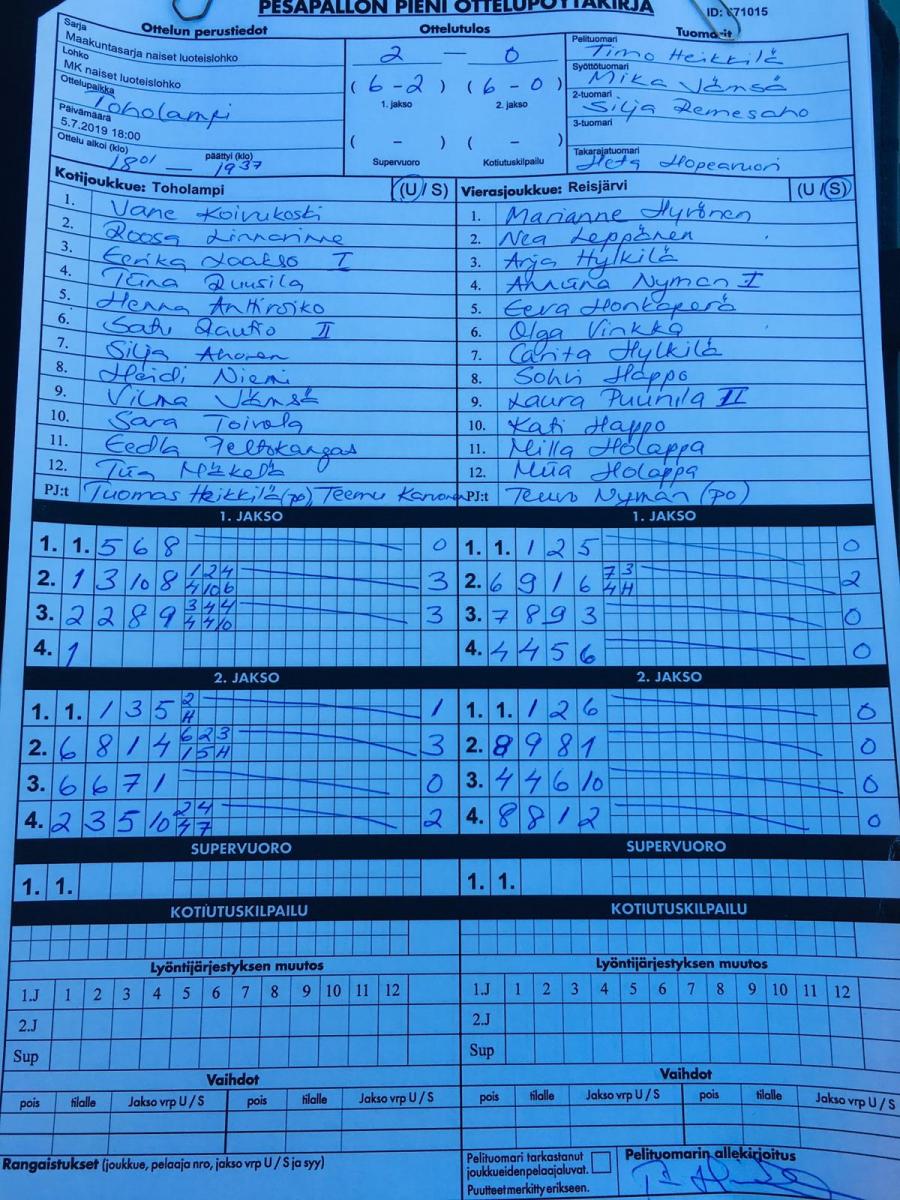 PESÄPALLON PIENI OTTELUPÖYTÄKIRJA
ID: 671015
Ottelun perustiedot
Sarja
Maakuntasarja naiset luoteislohko
Lohko
MK naiset luoteislohko
Ottelupaikka
Toholampi
Päivämäärä
5.7.2019 18:00
Ottelu alkoi (klo) päättyi (klo)
18 01 — 19 37
Ottelutulos
2 — 0
( 6 - 2 ) ( 6 - 0 )
1. jakso 2. jakso
( - ) ( - )
Supervuoro Kotiutuskilpailu
Tuomarit
Pelituomari
Timo Heikkilä
Syöttötuomari
Mika Jämsä
2-tuomari
Silja Remesaho
3-tuomari
Takarajatuomari
Heta Hopeavuori
Kotijoukkue: Toholampi (U / S)
1. Vane Koivukoski
2. Roosa Linnarinne
3. Eerika Laakso I
4. Tiina Ruusila
5. Henna Anttiroiko
6. Satu Rautio II
7. Silja Ahonen
8. Heidi Niemi
9. Vilma Jämsä
10. Sara Toivola
11. Eedla Peltokangas
12. Tiia Mäkelä
PJ:t Tuomas Heikkilä (po), Teemu Karvonen
Vierasjoukkue: Reisjärvi (U / S)
1. Marianne Hyvönen
2. Nea Leppänen
3. Arja Hylkilä
4. Anniina Nyman I
5. Eeva Honkaperä
6. Olga Vinkka
7. Carita Hylkilä
8. Sohvi Happo
9. Laura Puunila II
10. Kati Happo
11. Milla Holappa
12. Miia Holappa
PJ:t Teuvo Nyman (po)
1. JAKSO
1. 1. 5 6 8 0
2. 1 3 10 8 1 2 4 3
4 10 6
3. 2 2 8 9 3 4 4 3
4 4 10
4. 1
1. JAKSO
1. 1. 1 2 5 0
2. 6 9 1 6 7 3 2
4 H
3. 7 8 9 3 0
4. 4 4 5 6 0
2. JAKSO
1. 1. 1 3 5 2 1
H
2. 6 8 1 4 6 2 3 3
1 5 H
3. 6 6 7 1 0
4. 2 3 5 10 2 4 2
4 7
2. JAKSO
1. 1. 1 2 6 0
2. 8 9 8 1 0
3. 4 4 6 10 0
4. 8 8 1 2 0
SUPERVUORO
1. 1.
SUPERVUORO
1. 1.
KOTIUTUSKILPAILU
KOTIUTUSKILPAILU
Lyöntijärjestyksen muutos
1.J 1 2 3 4 5 6 7 8 9 10 11 12
2.J
Sup
Lyöntijärjestyksen muutos
1.J 1 2 3 4 5 6 7 8 9 10 11 12
2.J
Sup
Vaihdot
pois tilalle Jakso vrp U / S pois tilalle Jakso vrp U / S
Vaihdot
pois tilalle Jakso vrp U / S pois tilalle Jakso vrp U / S
Rangaistukset (joukkue, pelaaja nro, jakso vrp U / S ja syy)
Pelituomari tarkastanut
joukkueiden pelaajaluvat.
Puutteet merkitty erikseen.
Pelituomarin allekirjoitus